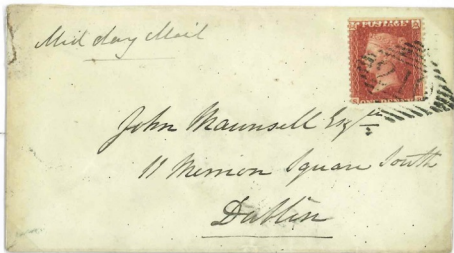 Mid day Mail
John Maunsell Esqre
11 Merrion Square South
Dublin